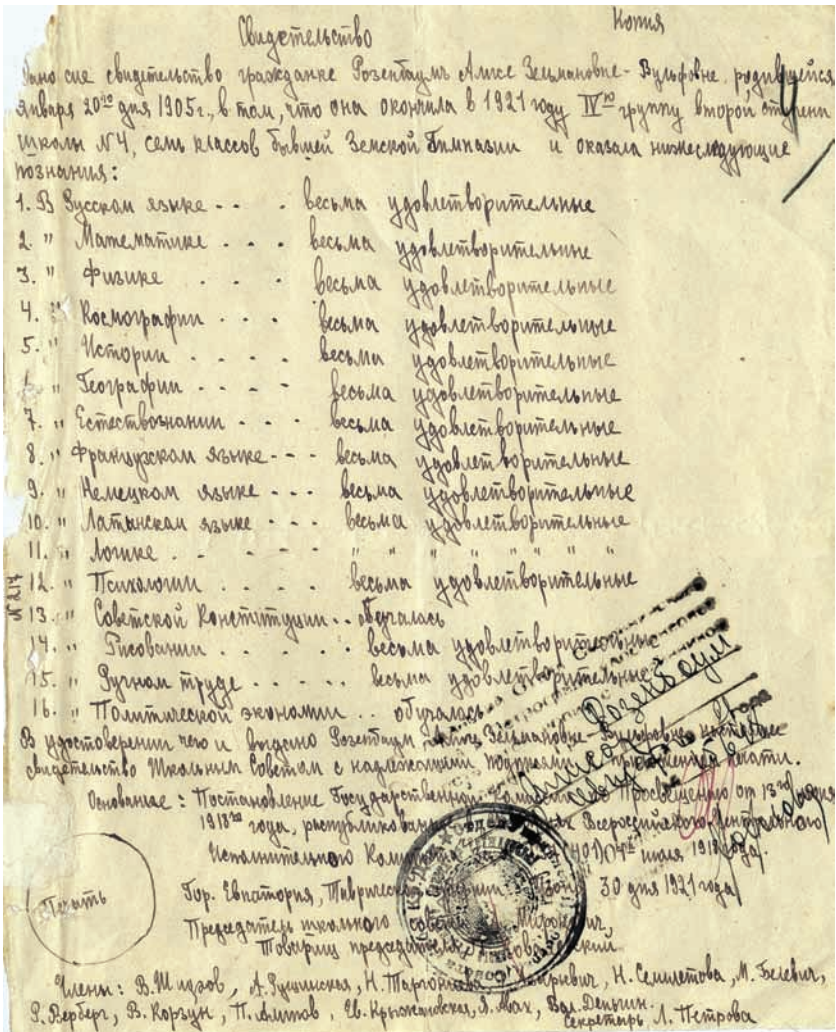 Свидетельство
Копия
Дано сие свидетельство гражданке Розенбаумъ Алисе Зельмановне-Вульфовне, родившейся
января 20го дня 1905г., в том, что она окончила в 1921 году IVую группу второй ступени
школы №4, семь классов бывшей Земской Гимназии и оказала нижеследующие
познания:
1. В Русском языке - - . весьма удовлетворительные
2. " Математике . . . весьма удовлетворительные
3. " Физике . . . весьма удовлетворительные
4. " Космографии . . . весьма удовлетворительные
5. " Истории . . . . весьма удовлетворительные
6. " Географии . . - - весьма удовлетворительные
7. " Естествознании - . . весьма удовлетворительные
8. " Французском языке - - - весьма удовлетворительные
9. " Немецком языке - - - весьма удовлетворительные
10. " Латинском языке - - весьма удовлетворительные
11. " Логике . - - - - - " " " " " " " "
12. " Психологии . . . . весьма удовлетворительные
№ 217
13. " Советской Конституции . . обучалась
14. " Рисовании . . . . . весьма удовлетворительные
15. " Ручном труде . . - . . весьма удовлетворительные
16. " Политической экономии . . обучалась
В удостоверении чего и выдано Розенбаум Алисе Зельмановне-Вульфовне настоящее
свидетельство Школьным Советом с надлежащими подписями и приложением печати.
Алиса Розенбаум
Основание: Постановление Государственной Комиссии по Просвещению от
1918го года, распубликованное Всероссийского Центрального
Исполнительного Комитета июля 1918 года.
Гор. Евпатория, Таврической губернии. 30 дня 1921 года
Печать
Председатель школьного совета Миронович,
Товарищ председателя
Члены: В. , А. Рущинская, Н. , Н. Семилетова, М. Белевич,
Р. Верберг, В. Корзун, П. , Ев. Крыжановская, Я. Мах, Вал. Деньгин.
Секретарь Л. Петрова